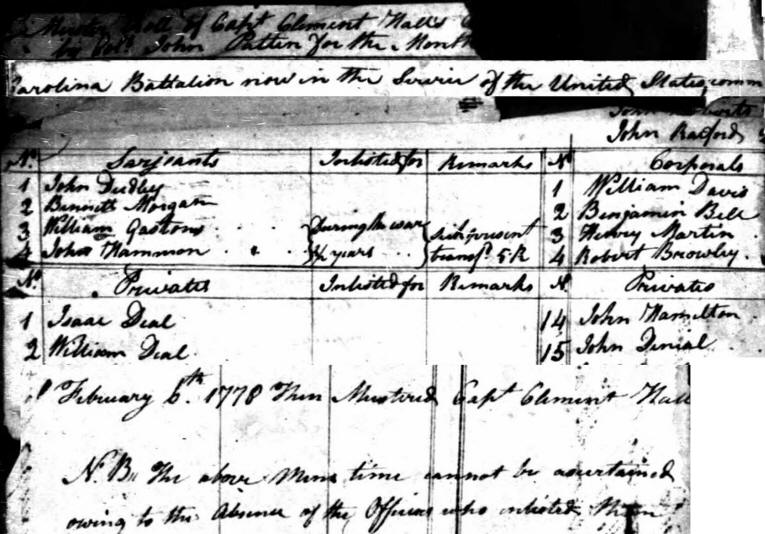 Muster Roll of Capt Clement Hall's
by Col. John Patten for the Month
Carolina Battalion now in the Servic of the United States comm
John
John Raiford
No. Sarjeants Inlisted for Remarks N Corporals
1 John Dudley 1 William Davis
2 Bennett Morgan 2 Benjamin Bell
3 William Gastons During the war sick present 3 Henry Martin
4 John Hammon years transfd. 5 R 4 Robert Browley.
No. Privates Inlisted for Remarks N. Privates
1 Isaac Deal 14 John Hamilton
2 William Deal 15 John Denial
February 6th. 1778 Then Mustered Capt Clement Hall
N.B. The above Mens time cannot be ascertained
owing to the Absence of the Officers who inlisted them